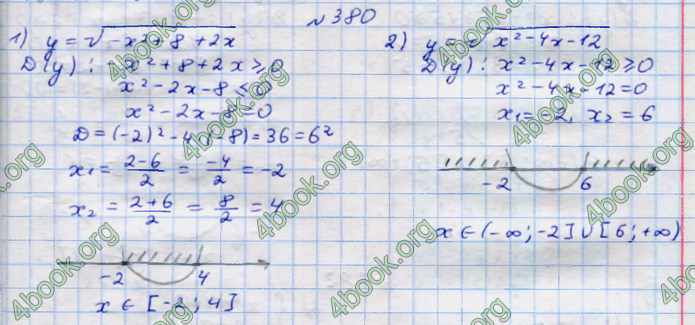 №380
1) y = √-x²+8+2x
D(y): -x²+8+2x ≥ 0
x²-2x-8 ≤ 0
x²-2x-8=0
D = (-2)²-4·(-8) = 36 = 6²
x₁ = (2-6)/2 = -4/2 = -2
x₂ = (2+6)/2 = 8/2 = 4
-2 4
x ∈ [-2; 4]
2) y = √x²-4x-12
D(y): x²-4x-12 ≥ 0
x²-4x-12=0
x₁=-2, x₂=6
-2 6
x ∈ (-∞; -2]∪[6; +∞)
4book.org
4book.org
4book.org
4book.org
4book.org
4book.org
4book.org
4book.org